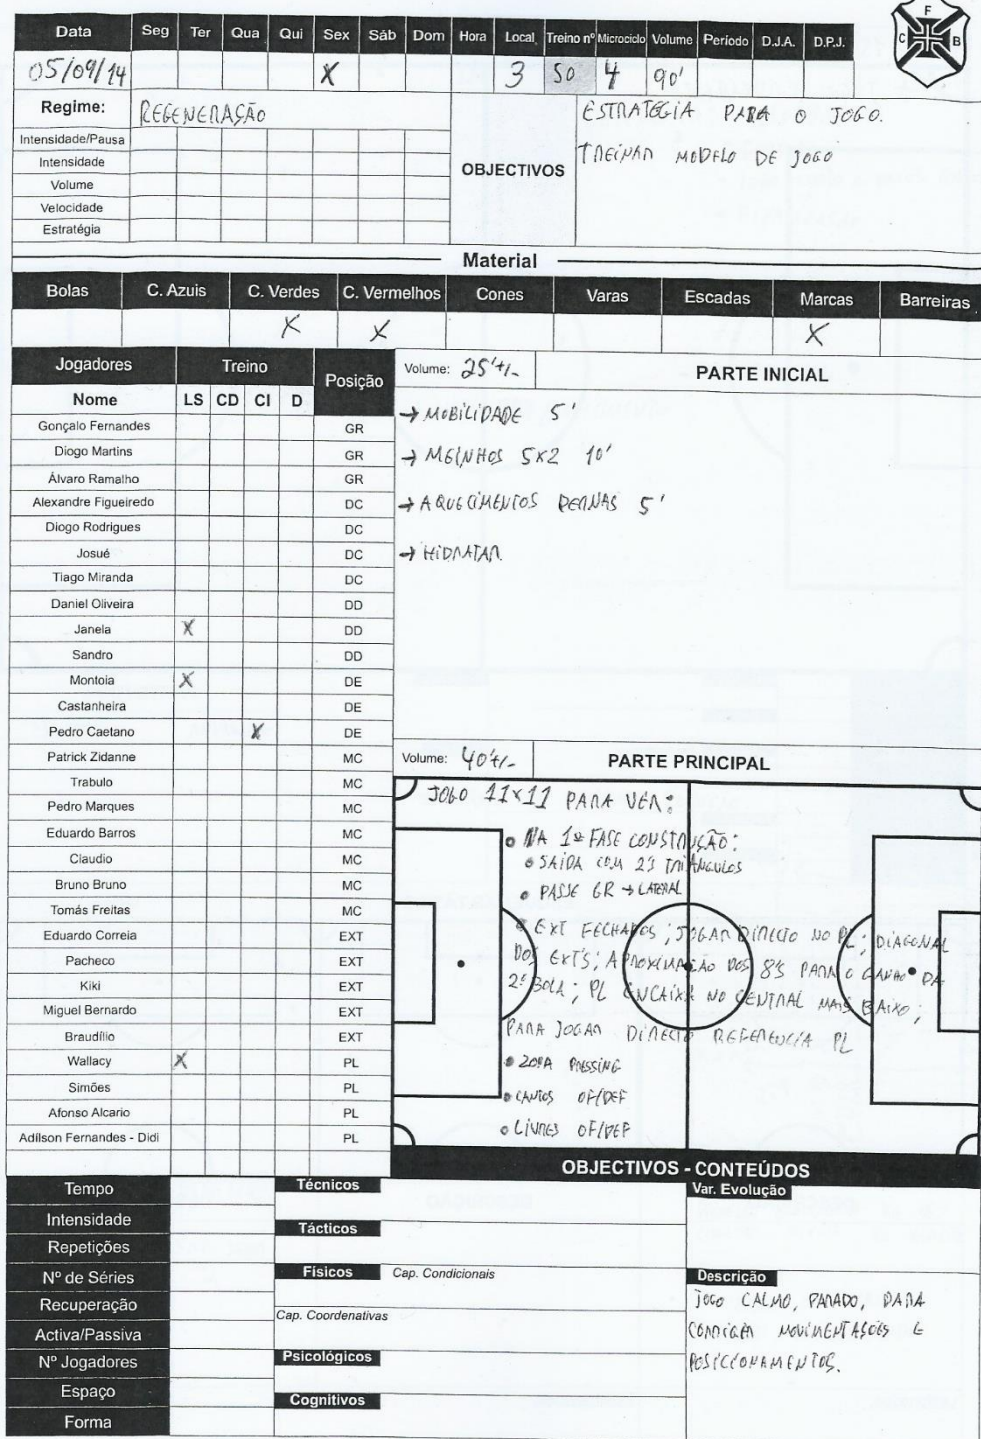 F
C B
Data Seg Ter Qua Qui Sex Sáb Dom Hora Local Treino nº Microciclo Volume Período D.J.A. D.P.J.
05/09/14 X 3 50 4 90'
Regime: REGENERAÇÃO
Intensidade/Pausa
Intensidade
Volume
Velocidade
Estratégia
OBJECTIVOS
ESTRATÉGIA PARA O JOGO.
TREINAR MODELO DE JOGO
Material
Bolas C. Azuis C. Verdes C. Vermelhos Cones Varas Escadas Marcas Barreiras
X X X
Jogadores Treino Posição
Nome LS CD CI D
Gonçalo Fernandes GR
Diogo Martins GR
Álvaro Ramalho GR
Alexandre Figueiredo DC
Diogo Rodrigues DC
Josué DC
Tiago Miranda DC
Daniel Oliveira DD
Janela X DD
Sandro DD
Montoia X DE
Castanheira DE
Pedro Caetano X DE
Patrick Zidanne MC
Trabulo MC
Pedro Marques MC
Eduardo Barros MC
Claudio MC
Bruno Bruno MC
Tomás Freitas MC
Eduardo Correia EXT
Pacheco EXT
Kiki EXT
Miguel Bernardo EXT
Braudílio EXT
Wallacy X PL
Simões PL
Afonso Alcario PL
Adílson Fernandes - Didi PL
Volume: 25'+/- PARTE INICIAL
→ MOBILIDADE 5'
→ MEINHOS 5x2 10'
→ AQUECIMENTOS PERNAS 5'
→ HIDRATAR
Volume: 40'+/- PARTE PRINCIPAL
JOGO 11x11 PARA VER:
• NA 1ª FASE CONSTRUÇÃO:
• SAÍDA COM 2 TRIÂNGULOS
• PASSE GR → LATERAL
• EXT FECHADOS; JOGAR DIRECTO NO PL; DIAGONAL
DOS EXT'S; APROXIMAÇÃO DOS 8'S PARA O GANHO DA
2ª BOLA; PL ENCAIXA NO CENTRAL MAIS BAIXO;
PARA JOGAR DIRECTO REFERENCIA PL
• ZONA PRESSING
• CANTOS OF/DEF
• LIVRES OF/DEF
OBJECTIVOS - CONTEÚDOS
Tempo
Intensidade
Repetições
Nº de Séries
Recuperação
Activa/Passiva
Nº Jogadores
Espaço
Forma
Técnicos
Tácticos
Físicos Cap. Condicionais
Cap. Coordenativas
Psicológicos
Cognitivos
Var. Evolução
Descrição
JOGO CALMO, PARADO, PARA
CORRIGIR MOVIMENTAÇÕES E
POSICIONAMENTOS.